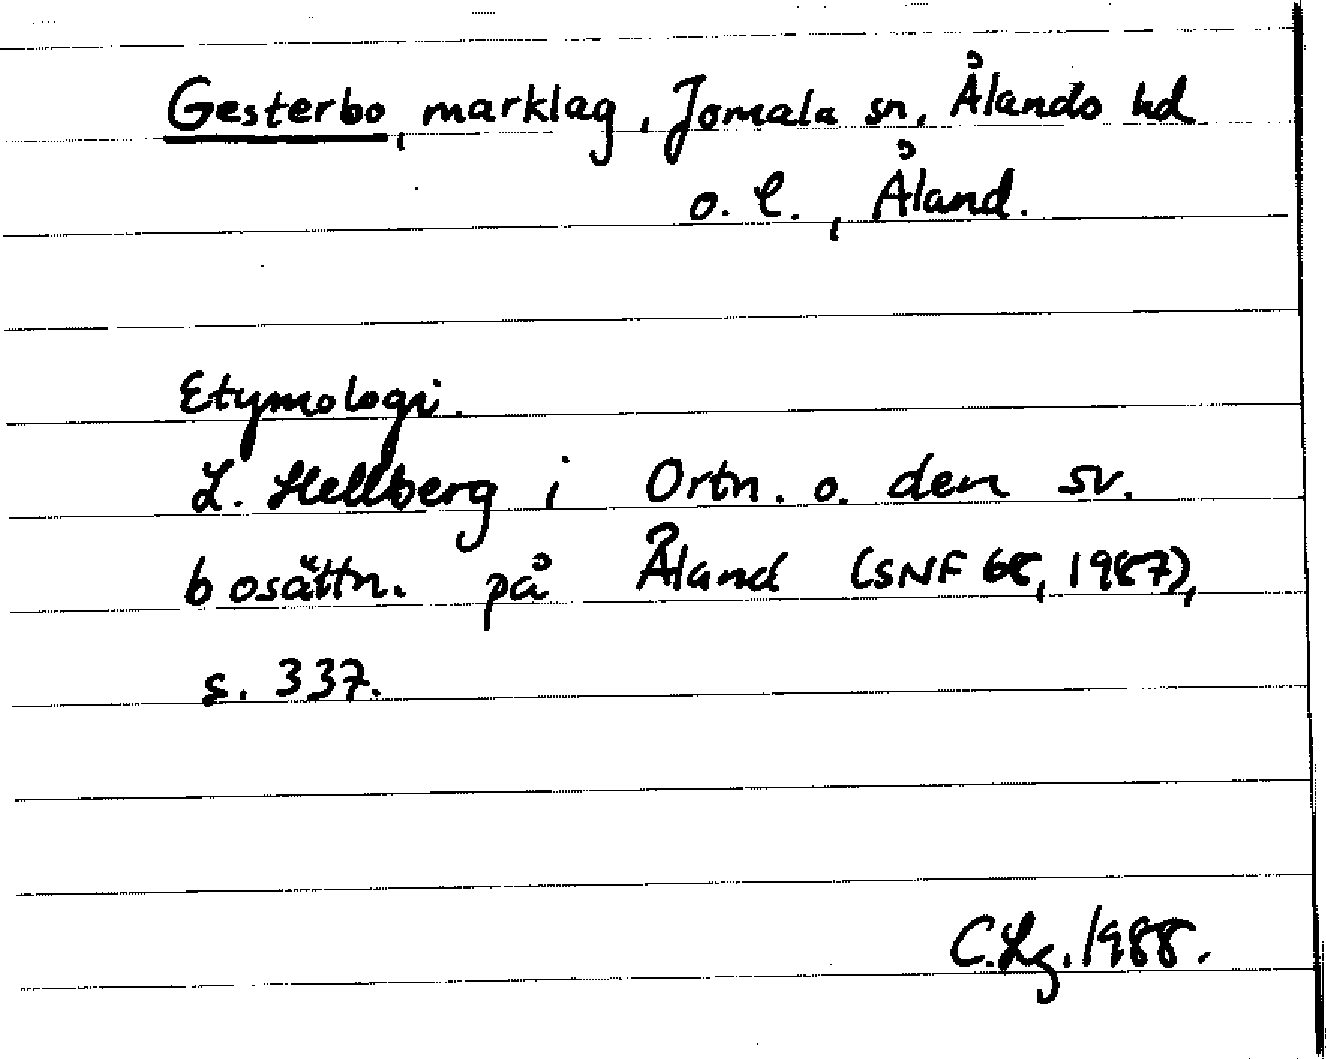 Gesterbo, marklag, Jomala sn, Ålands hd
o. l., Åland.
Etymologi.
L. Hellberg i Ortn. o. den sv.
bosättn. på Åland (SNF 68, 1987),
s. 337.
C.Lg. 1988.